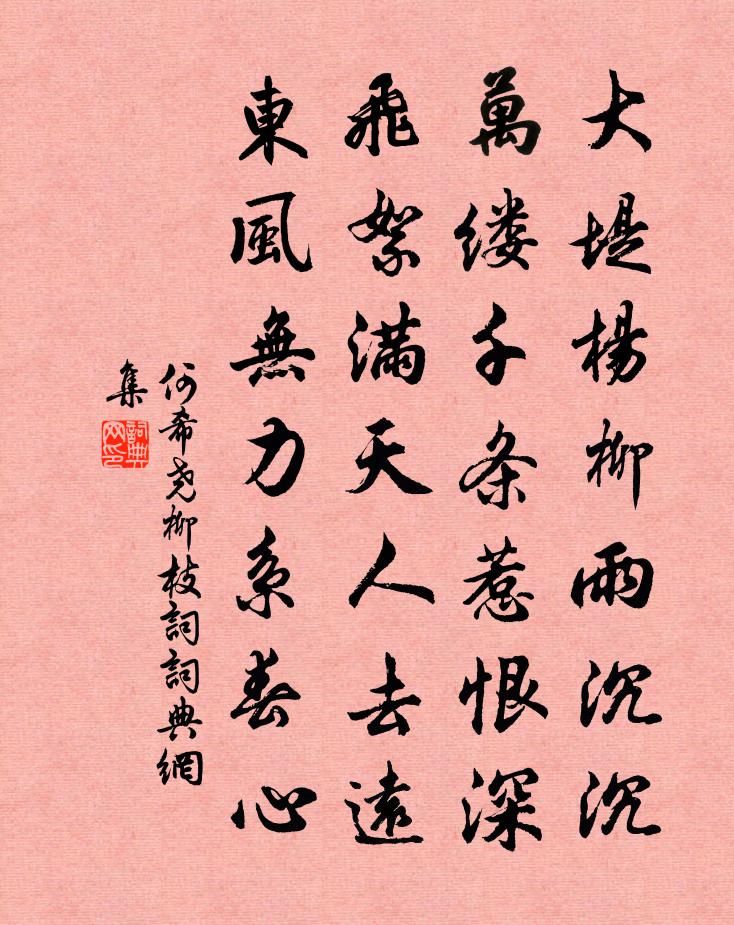 大堤楊柳雨沉沉
萬缕千条惹恨深
飛絮滿天人去遠
東風無力系春心
何希尧柳枝詞詞典網
集
詞典
网印